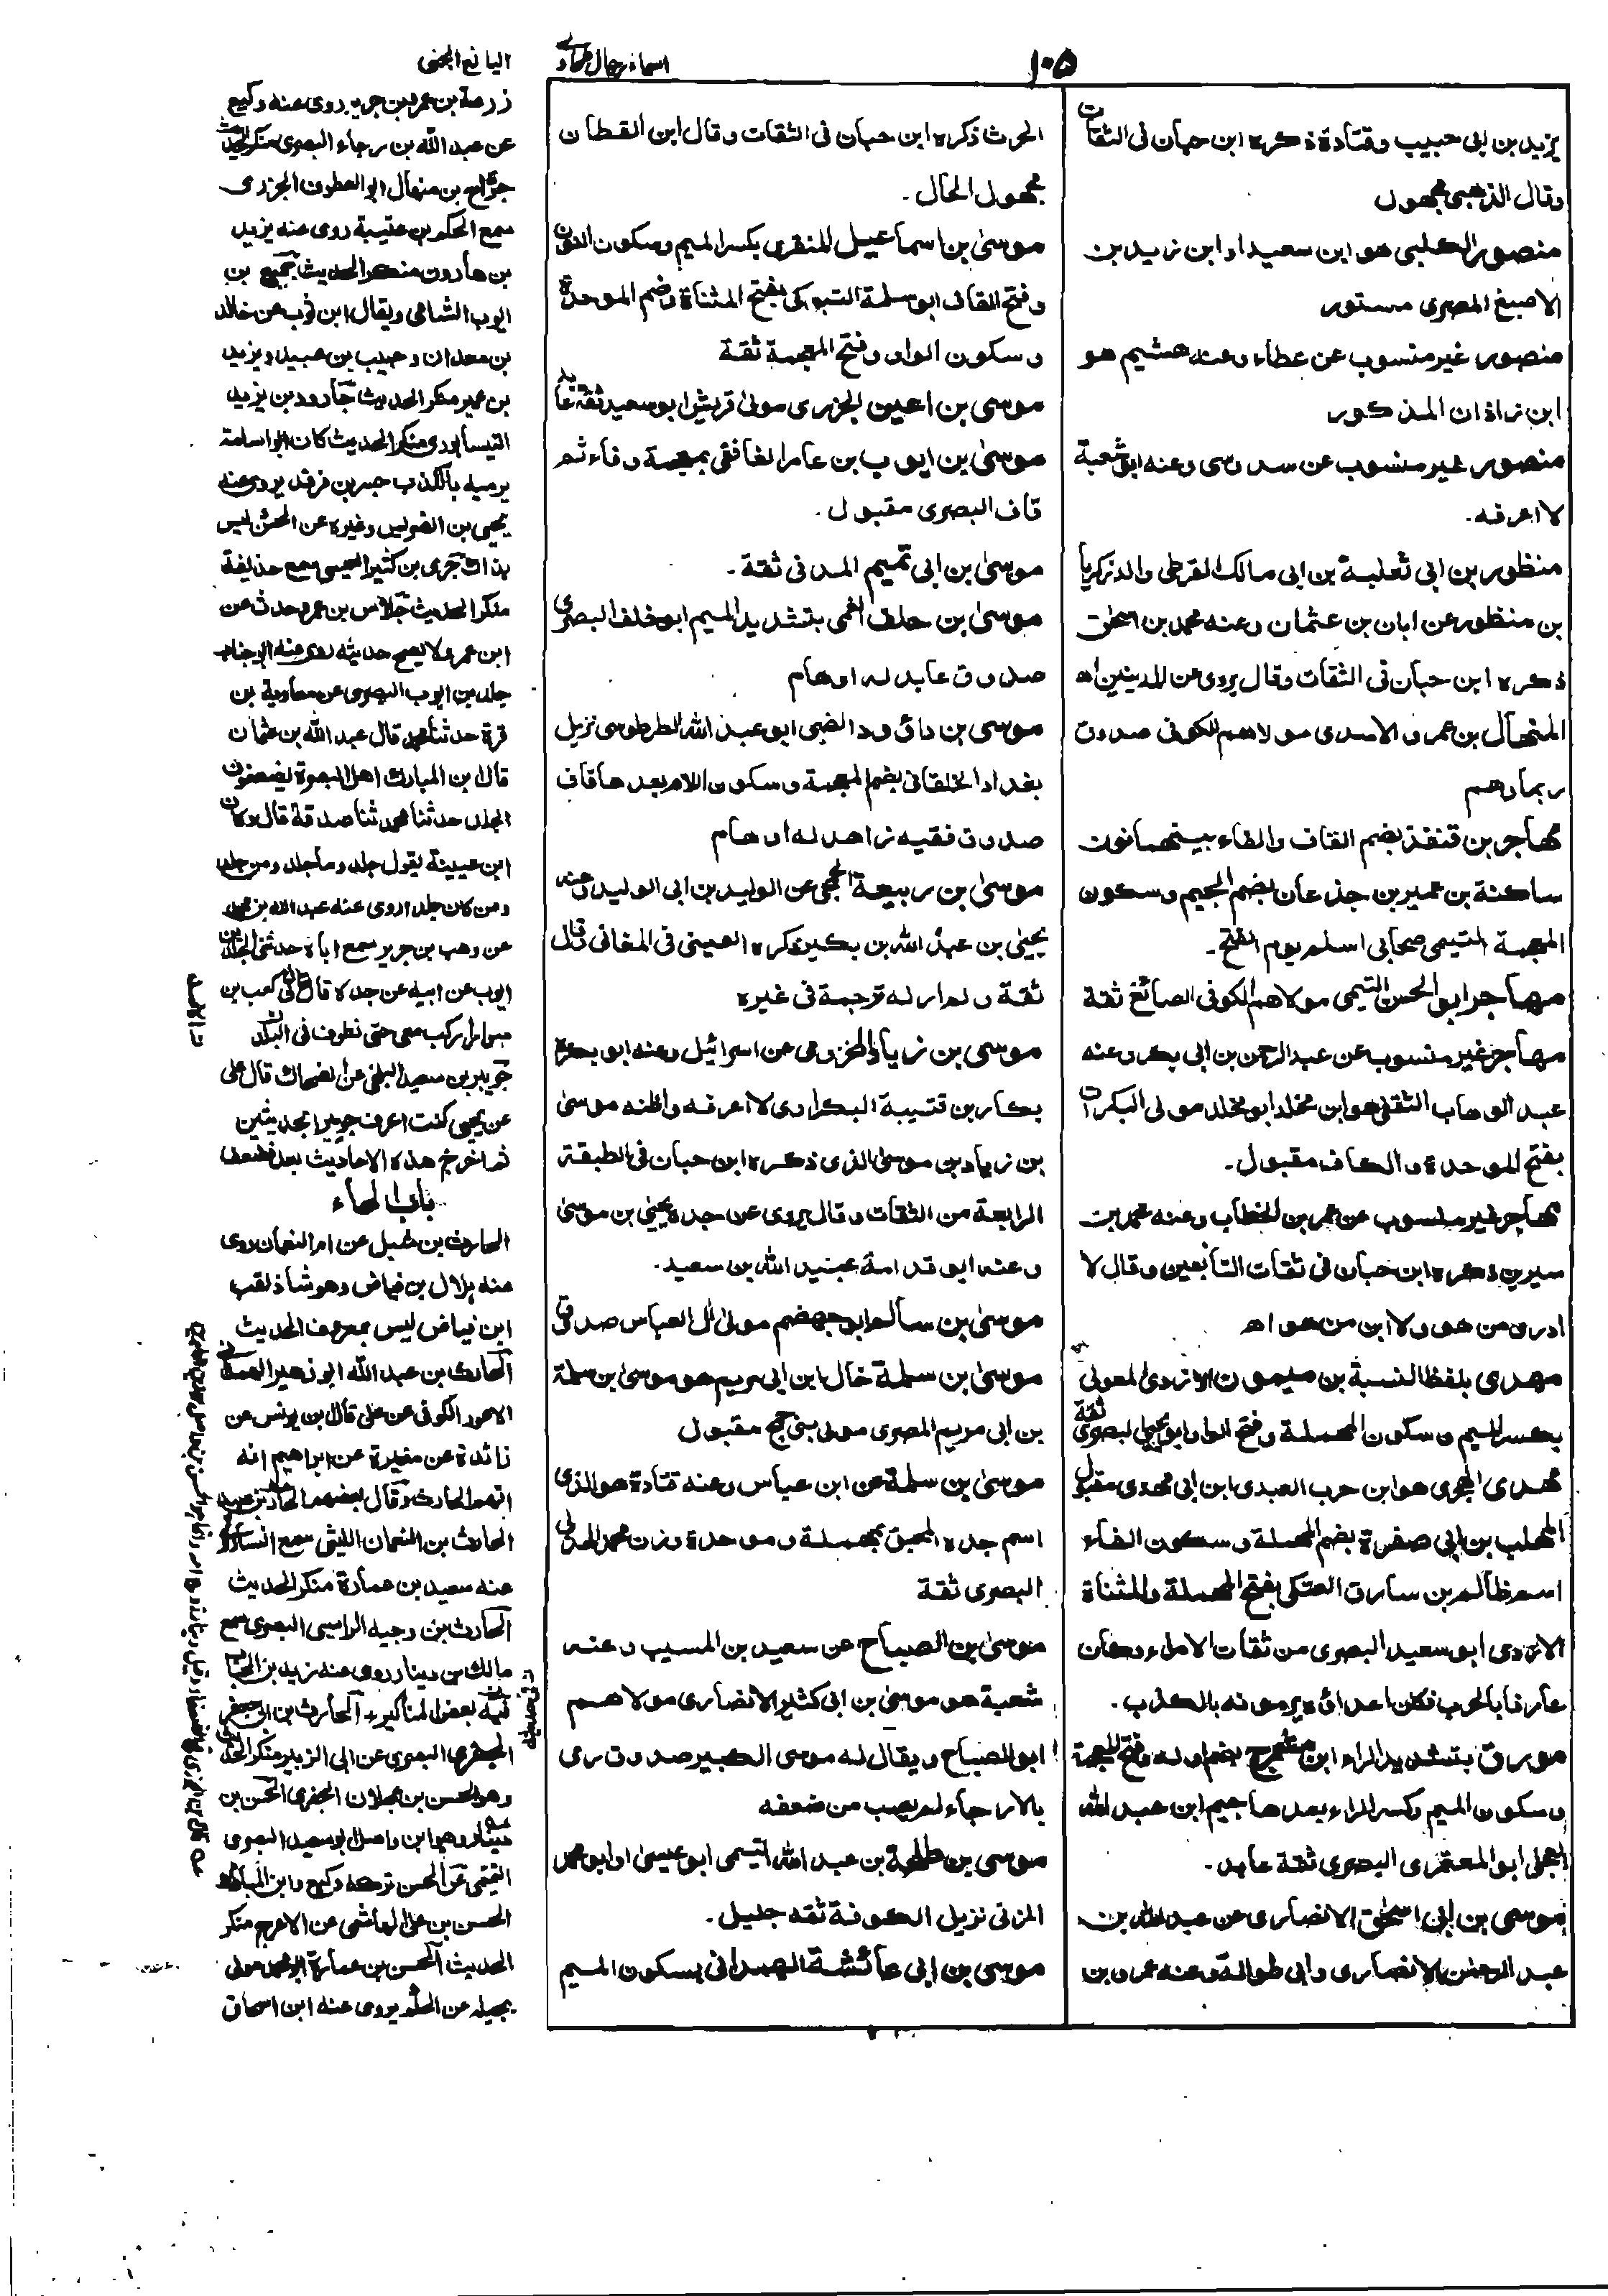 ١٠٥
اسماء رجال طحاوی
اليانع الجنی
يزيد بن ابی حبيب وقتادة ذكره ابن حبان فی الثقات
وقال الذهبی مجهول
منصور الكلبی هو ابن سعيد او ابن زيد بن
الاصبغ المصری مستور
منصور غير منسوب عن عطاء وعنه هشيم هو
ابن زاذان المذكور
منصور غير منسوب عن سدوسی وعنه ابو شعبة
لا اعرفه.
منظور بن ابی ثعلبة بن ابی مالك القرظی والد زكريا
بن منظور عن ابان بن عثمان وعنه محمد بن اسحٰق
ذكره ابن حبان فی الثقات وقال يروی عن المدينين اه
المنهال بن عمرو الاسدی مولاهم الكوفی صدوق
ربما وهم
مهاجر بن قنفذ بضم القاف والفاء بينهما نون
ساكنة بن عمير بن جذعان بضم الجيم وسكون
المعجمة التيمی صحابی اسلم يوم الفتح.
مهاجر ابو الحسن التيمی مولاهم الكوفی الصائغ ثقة
مهاجر غير منسوب عن عبد الرحمن بن ابی بكر وعنه
عبد الوهاب الثقفی هو ابن مخلد ابو مخلد مولی البكرات
بفتح الموحدة والكاف مقبول.
مهاجر غير منسوب عن عمر بن الخطاب وعنه محمد بن
سيرين ذكره ابن حبان فی ثقات التابعين وقال لا
ادری من هو ولا ابن من هو اه
مهدی بلفظ النسبة بن ميمون الازدی المعولی
بكسر الميم وسكون المهملة وفتح الواو ابو يحيی البصری ثقة
مهدی الهجری هو ابن حرب العبدی ابن ابی مهدی مقبول
المهلب بن ابی صفرة بضم المهملة وسكون الفاء
اسم ظالم بن سارق العتكی بفتح المهملة والمثناة
الازدی ابو سعيد البصری من ثقات الامراء وكان
عارفا بالحرب فكان اعداؤه يرمونه بالكذب.
مورق بتشديد الراء ابن مشمرج بضم اوله وفتح المعجمة
وسكون الميم وكسر الراء بعدها جيم ابن عبد الله
العجلی ابو المعتمر البصری ثقة عابد.
موسی بن ابی اسحٰق الانصاری عن عبد الله بن
عبد الرحمٰن الانصاری وابی طوالة وعنه عمرو بن
الحرث ذكره ابن حبان فی الثقات وقال ابن القطان
مجهول الحال.
موسیٰ بن اسماعيل المنقری بكسر الميم وسكون النون
وفتح القاف ابو سلمة التبوذكی بفتح المثناة وضم الموحدة
وسكون الواو وفتح المعجمة ثقة
موسی بن اعين الجزری مولی قريش ابو سعيد ثقة عابد
موسیٰ بن ايوب بن عامر الغافقی بمعجمة وفاء ثم
قاف البصری مقبول.
موسیٰ بن ابی تميم المدنی ثقة.
موسیٰ بن خلف العمی بتشديد الميم ابو خلف البصری
صدوق عابد له اوهام
موسی بن داؤود الضبی ابو عبد الله الطرطوسی نزيل
بغداد الخلقانی بضم المعجمة وسكون اللام بعدها قاف
صدوق فقيه زاهد له اوهام
موسیٰ بن ربيعة الجمحی عن الوليد بن ابی الوليد وعنه
يحيیٰ بن عبد الله بن بكير ذكره العينی فی المغانی وقال
ثقة ولم ار له ترجمة فی غيره
موسی بن زياد المخزومی عن اسرائيل وعنه ابو بكرة
بكار بن قتيبة البكراوی لا اعرفه واظنه موسیٰ
بن زياد بن موسیٰ الذی ذكره ابن حبان فی الطبقة
الرابعة من الثقات وقال يروی عن جده يحيیٰ بن موسیٰ
وعنه ابو قدامة عبيد الله بن سعيد.
موسیٰ بن سالم ابو جهضم مولیٰ آل العباس صدوق
موسیٰ بن سلمة خال ابن ابی مريم هو موسیٰ بن سلمة
بن ابی مريم المصری مولی بنی جمح مقبول
موسیٰ بن سلمة عن ابن عباس وعنه قتادة هو الذی
اسم جده المحبق بمهملة وموحدة وزن محمد الهذلی
البصری ثقة
موسیٰ بن الصباح عن سعيد بن المسيب وعنه
شعبة هو موسیٰ بن ابی كثير الانصاری مولاهم
ابو الصباح ويقال له موسی الكبير صدوق رمی
بالارجاء لم يصب من ضعفه
موسی بن طلحة بن عبد الله التيمی ابو عيسیٰ او ابو محمد
المزنی نزيل الكوفة ثقه جليل.
موسیٰ بن ابی عائشة الهمدانی بسكون الميم
زرعة بن عمرو بن جرير روی عنه وكيع
عن عبد الله بن رجاء البصری منكر الحديث
جراح بن منهال ابو العطوف الجزری
سمع الحكم بن عتيبة روی عنه يزيد
بن هارون منكر الحديث جميع بن
ايوب الشامی ويقال ابن ثوب عن خالد
بن معدان وحبيب بن عبيد ويزيد
بن عمير منكر الحديث جارود بن يزيد
النيسابوری منكر الحديث كان ابو اسامة
يرميه بالكذب جبر بن فرقد يروی عنه
يحيی بن الضريس وغيره عن الحسن ليس
بذاك جری بن كثير العيسی سمع حذيفة
منكر الحديث جلاس بن عمرو حدث عن
ابن عمر ولا يصح حديثه روی عنه ابو جناب
جلد بن ايوب البصری عن معاوية بن
قرة حدثنا محمد قال عبد الله بن عثمان
قال ابن المبارك اهل البصرة يضعفون
الجلد حدثنا محمد ثنا صدقة قال كان
ابن عيينة يقول جلد وما جلد ومن جلد
ومن كان جلد اروی عنه عبد الله بن
عن وهب بن جرير سمع اباه حدثنی الجلد بن
ايوب عن ابيه عن جده قال قال لی كعب بن
سوار اركب معی حتی نطوف فی البلاد
جويبر بن سعيد البلخی عن الضحاك قال علی
عن يحيی كنت اعرف جويبرا بحديثين
ثم اخرج هذه الاحاديث بعد فضعف
باب الحاء
الحارث بن شبيل عن ام النعمان روی
عنه هلال بن فياض وهو شاذ لقب
ابن فياض ليس بمعروف الحديث
الحارث بن عبد الله ابو زهير الهمدانی
الاعور الكوفی عن علی قال ابن يونس عن
زائدة عن مغيرة عن ابراهيم انه
اتهم الحارث وقال بعضهم الحارث بن عبيد
الحارث بن النعمان الليثی سمع انسا روی
عنه سعيد بن عمارة منكر الحديث
الحارث بن وجيه الراسبی البصری سمع
مالك بن دينار روی عنه زيد بن الحباب
فيه بعض المناكير، الحارث بن ابی جعفر
الجفری البصری عن ابی الزبير منكر الحديث
وهو الحسن بن عجلان الجفری الحسن بن
دينار وهو ابن واصل ابو سعيد البصری
التيمی عن الحسن تركه وكيع وابن المبارك
الحسن بن علی الهاشمی عن الاعرج منكر
الحديث الحسن بن عمارة ابو محمد مولی
بجيلة عن الحكم يروی عنه ابن اسحاق